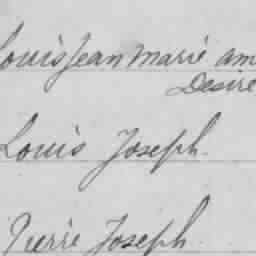 Louis Jean Marie am
Desire
Louis Joseph.
Pierre Joseph